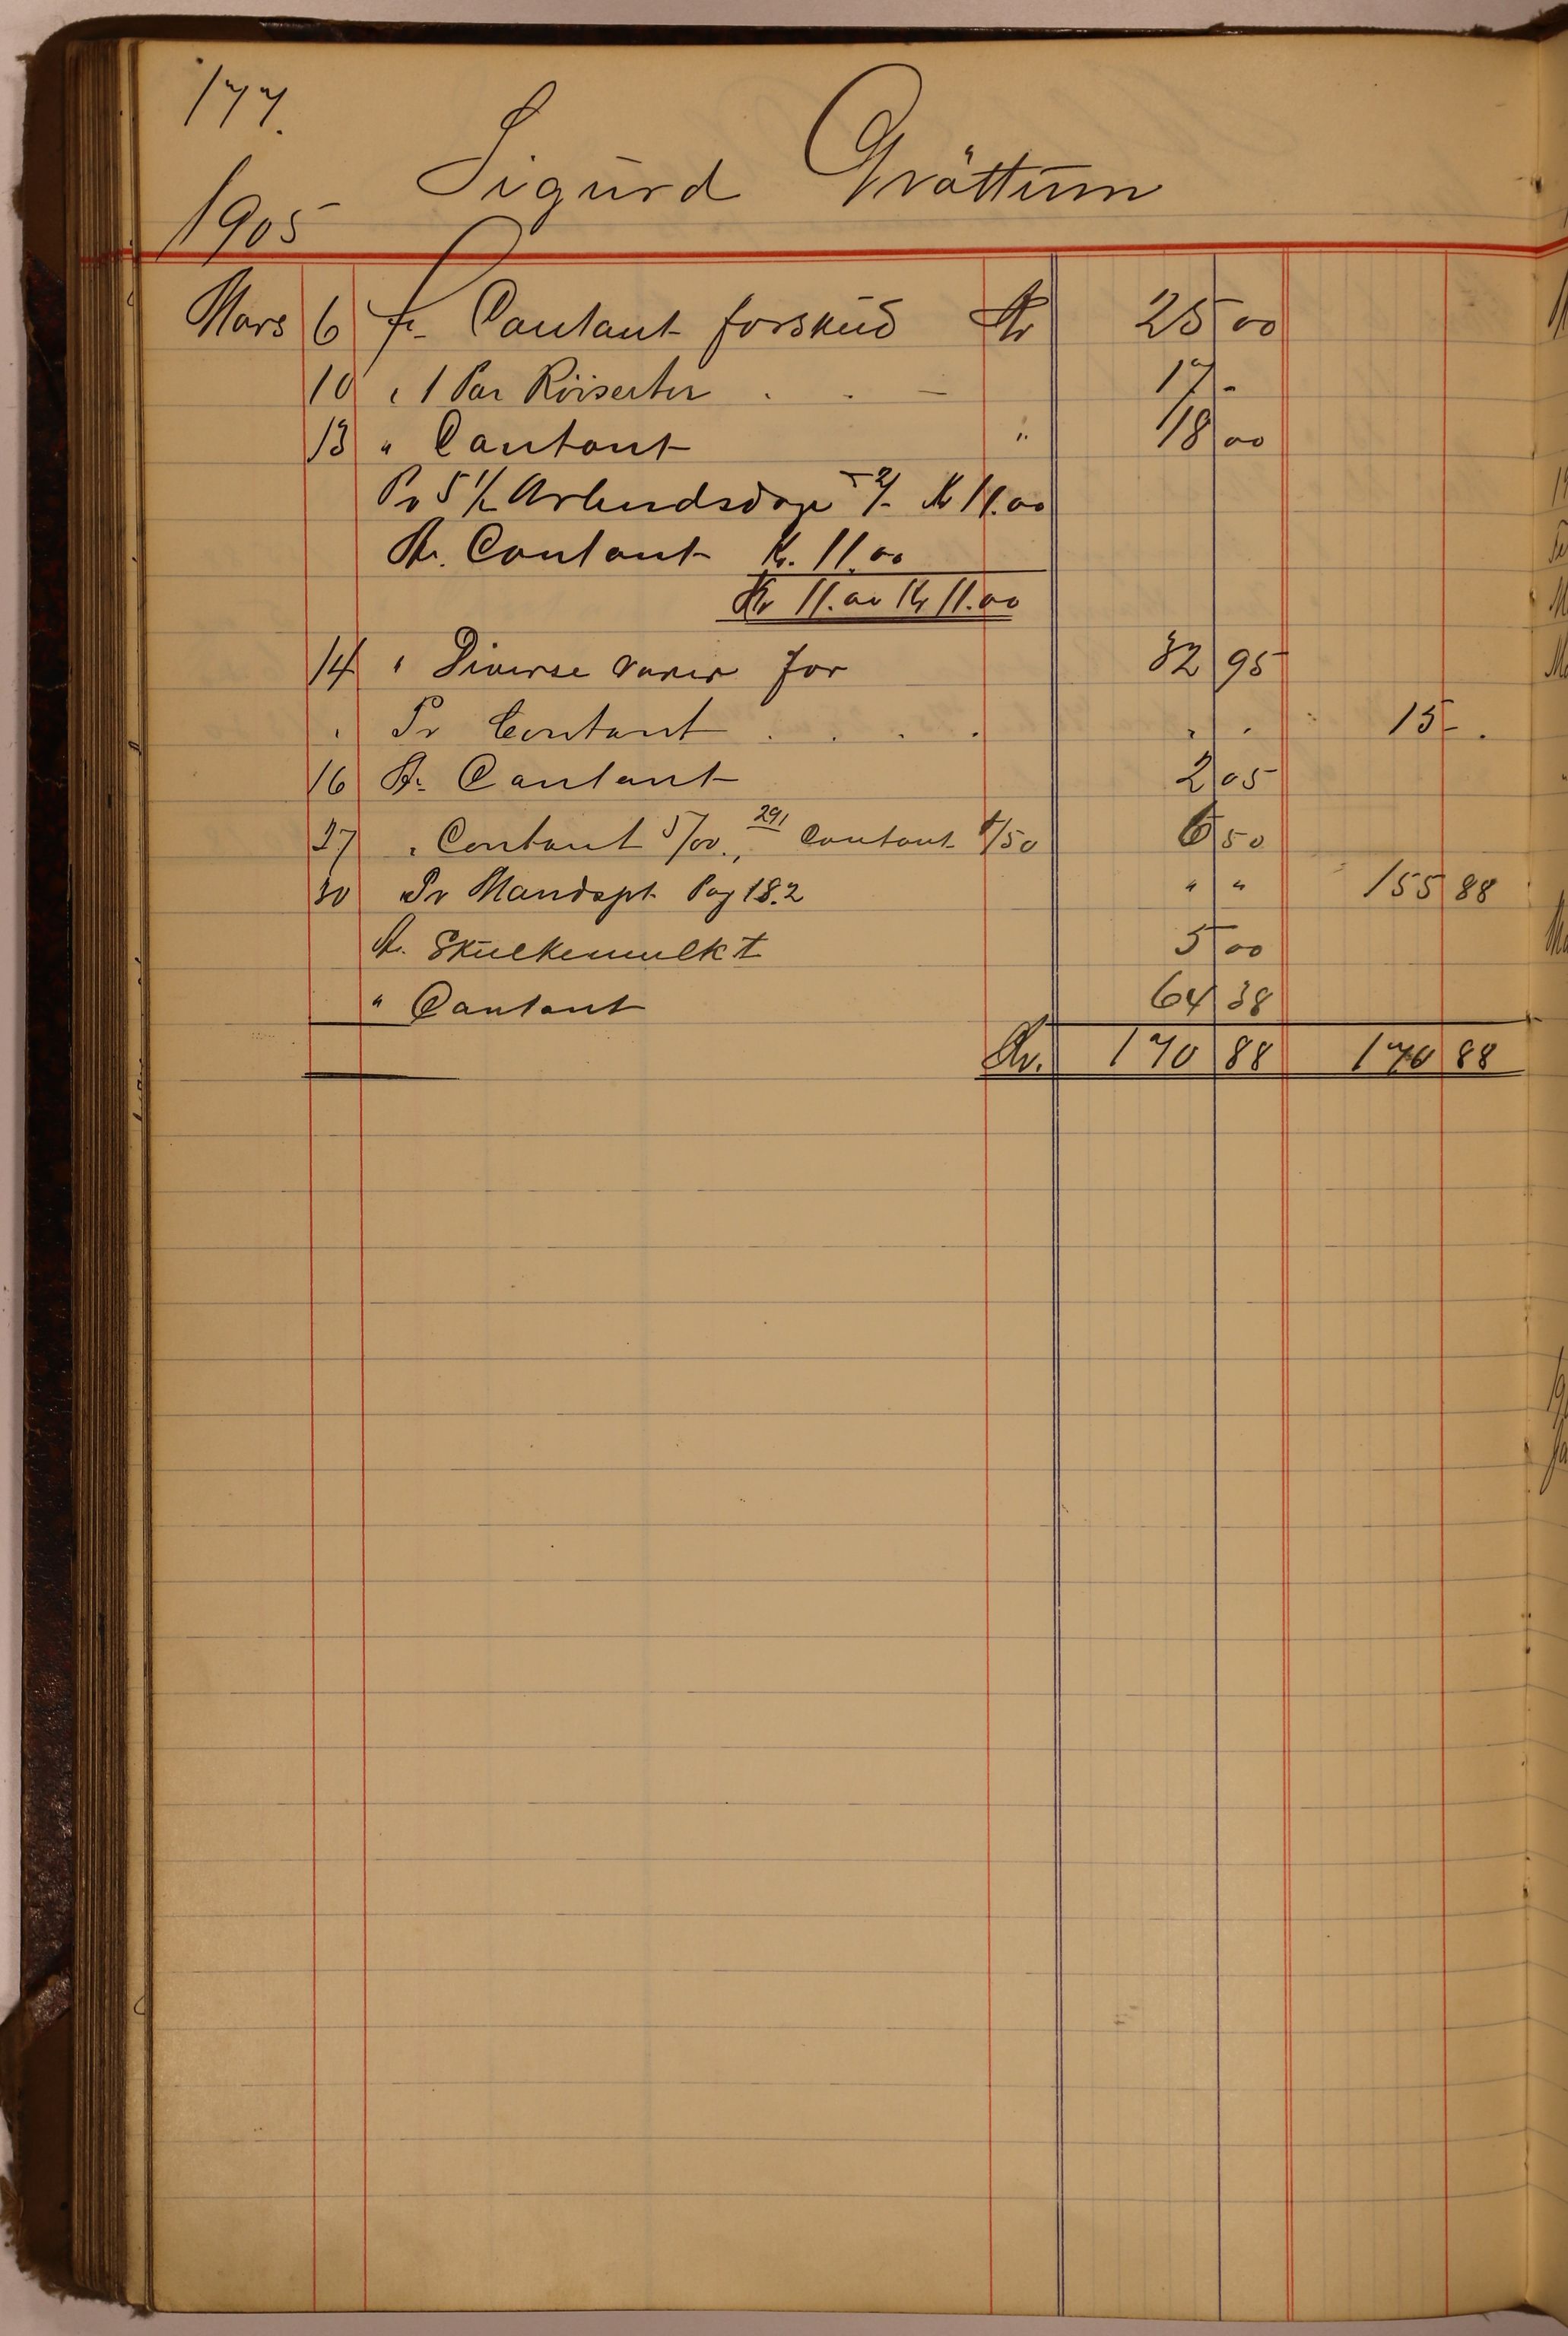 177.
Sigurd Gråttum
1905
Mars 6 fr. Contant forskud Kr 25 00
10 " 1 Par Röiserter . . — 17 -
13 " Contant " 18 00
Pr 5 1/2 Arbeidsdage á 2/- Kr 11.00
An. Contant Kr. 11.00
Kr 11.00 Kr 11.00
14 " Diverse varer for 32 95
" Pr Contant . . . . " " 15 - .
16 An. Contant 2 05
27 " Contant 5/00., 29/ Contant 1/50 6 50
30 Pr Mandspt. Pag 182 " " 155 88
An. Skulkemulkt 5 00
" Contant 64 38
Kr. 170 88 170 88